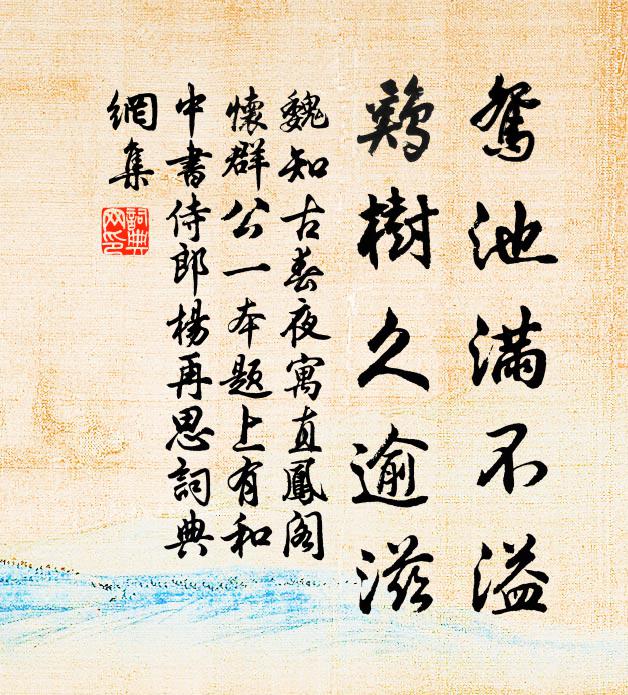 鴛池滿不溢
鷄樹久逾滋
魏知古春夜寓直鳳閣
懷群公一本題上有和
中書侍郎楊再思詞典
網集
詞典網印